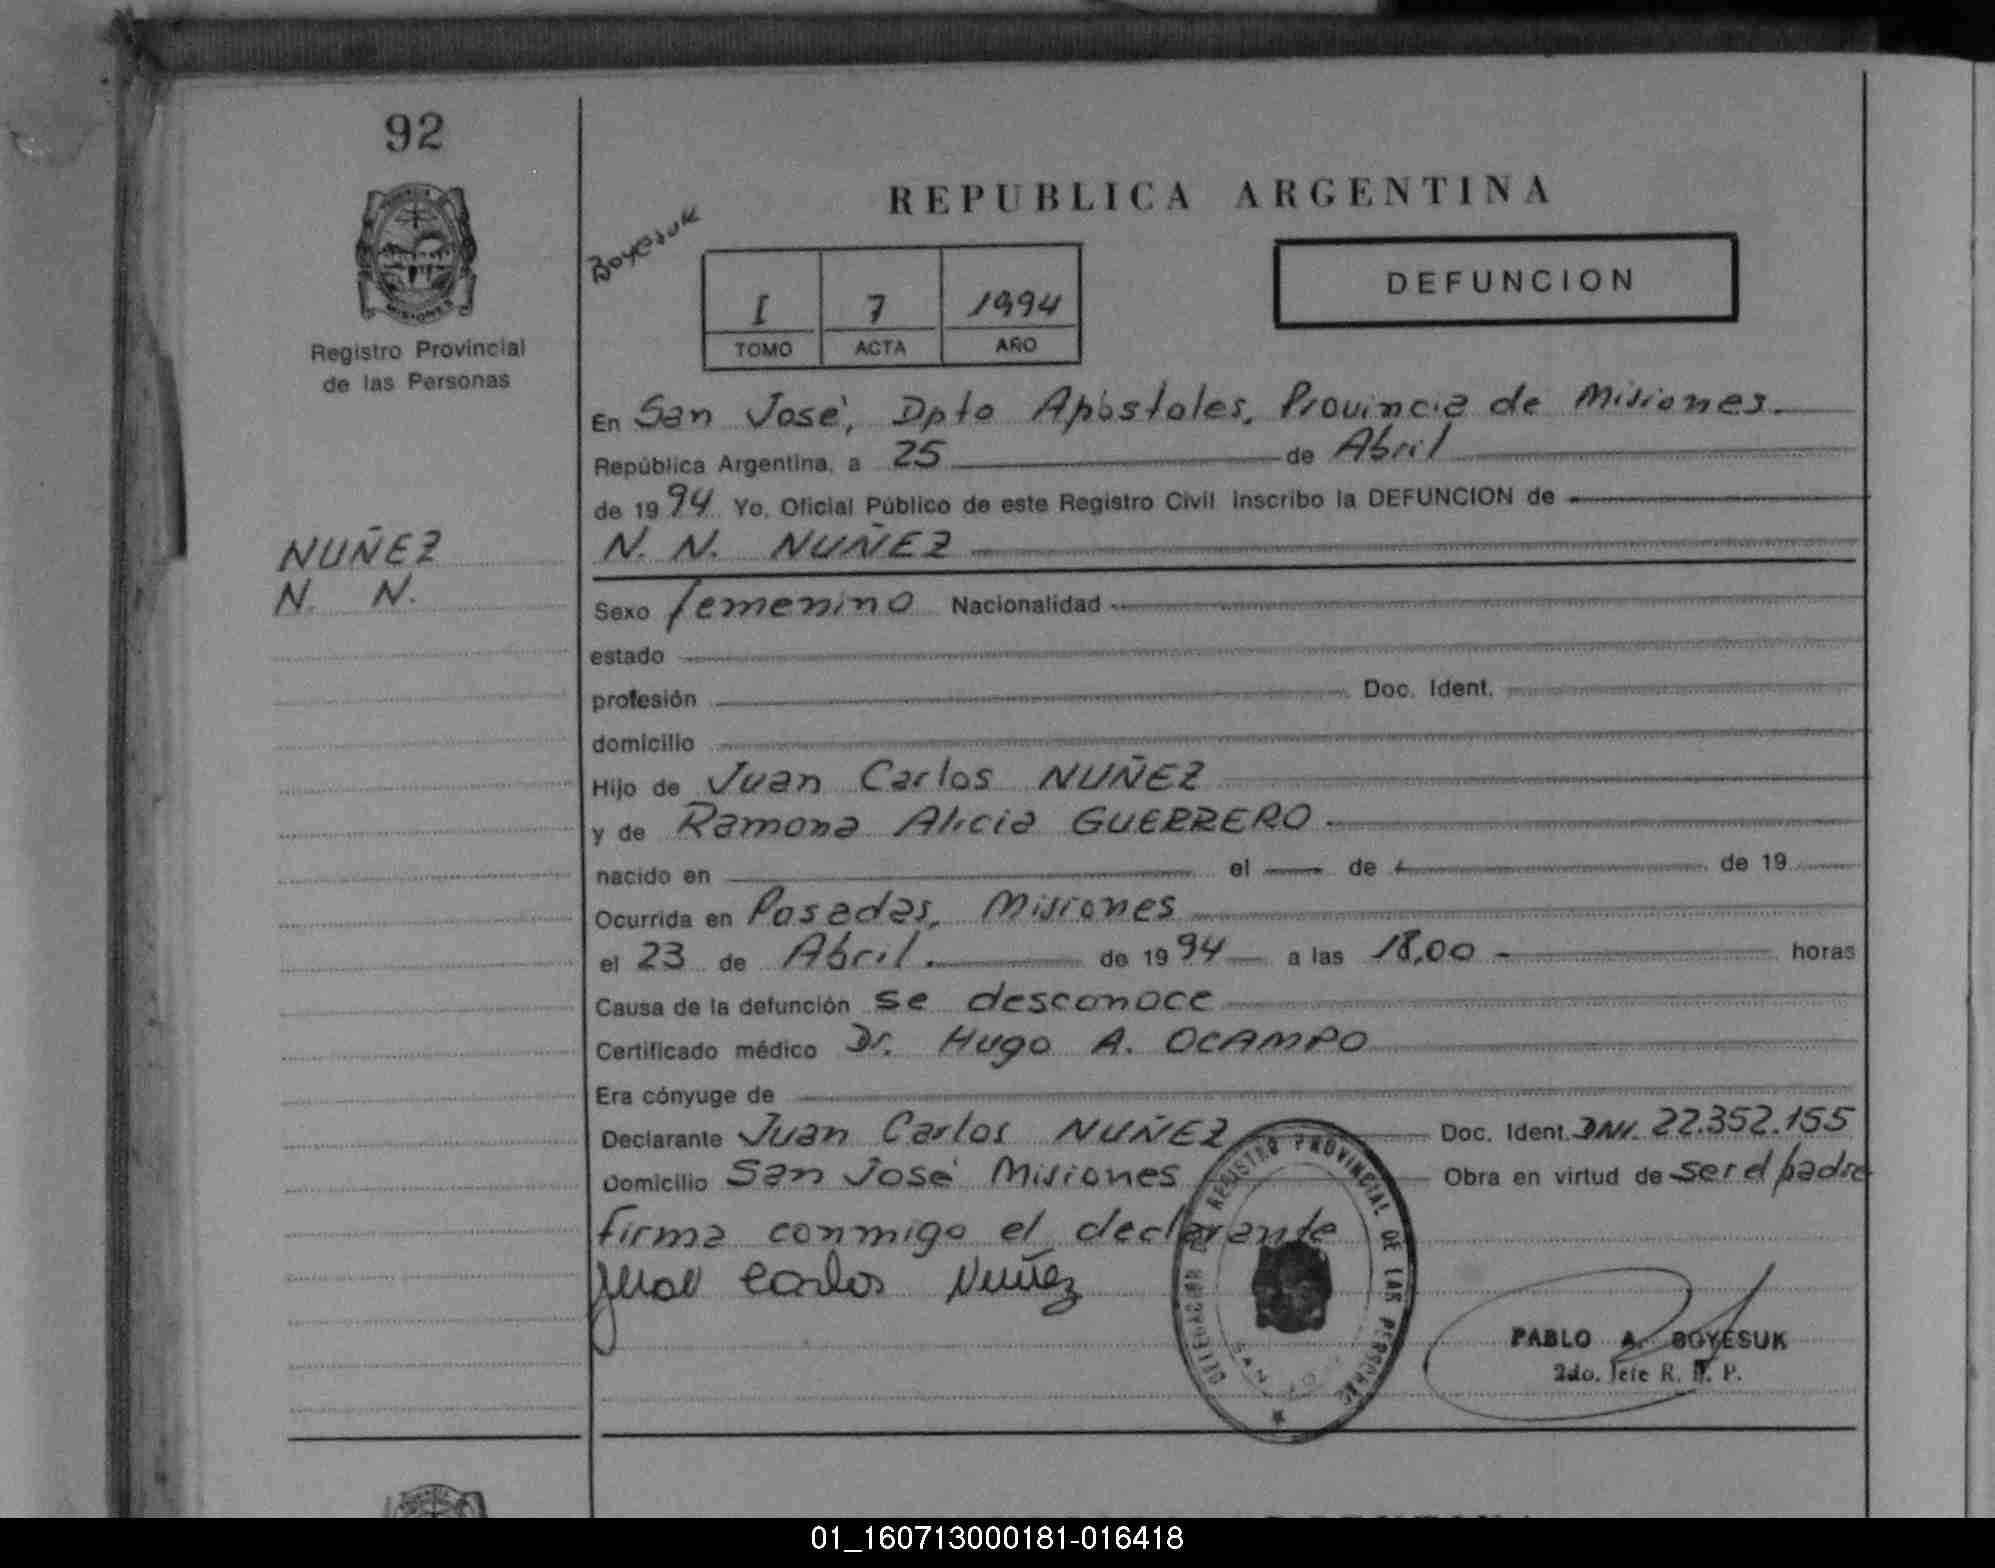 92
MISIONES
Registro Provincial
de las Personas
NUÑEZ
N. N.
Boyesuk
REPUBLICA ARGENTINA
I 7 1994
TOMO ACTA AÑO
DEFUNCION
En San José, Dpto Apóstoles, Provincia de Misiones.
República Argentina, a 25 de Abril
de 1994 Yo, Oficial Público de este Registro Civil inscribo la DEFUNCION de
N. N. NUÑEZ
Sexo femenino Nacionalidad
estado
profesión Doc. Ident.
domicilio
Hijo de Juan Carlos NUÑEZ
y de Ramona Alicia GUERRERO
nacido en el de de 19
Ocurrida en Posadas, Misiones
el 23 de Abril. de 1994 a las 18,00 - horas
Causa de la defunción se desconoce
Certificado médico Dr. Hugo A. OCAMPO
Era cónyuge de
Declarante Juan Carlos NUÑEZ Doc. Ident. DNI. 22.352.155
Domicilio San José Misiones Obra en virtud de ser el padre
firma conmigo el declarante
Juan Carlos Nuñez
DELEGACION REGISTRO PROVINCIAL DE LAS PERSONAS
SAN JOSE
PABLO A. BOYESUK
2do. Jefe R. P. P.
01_160713000181-016418